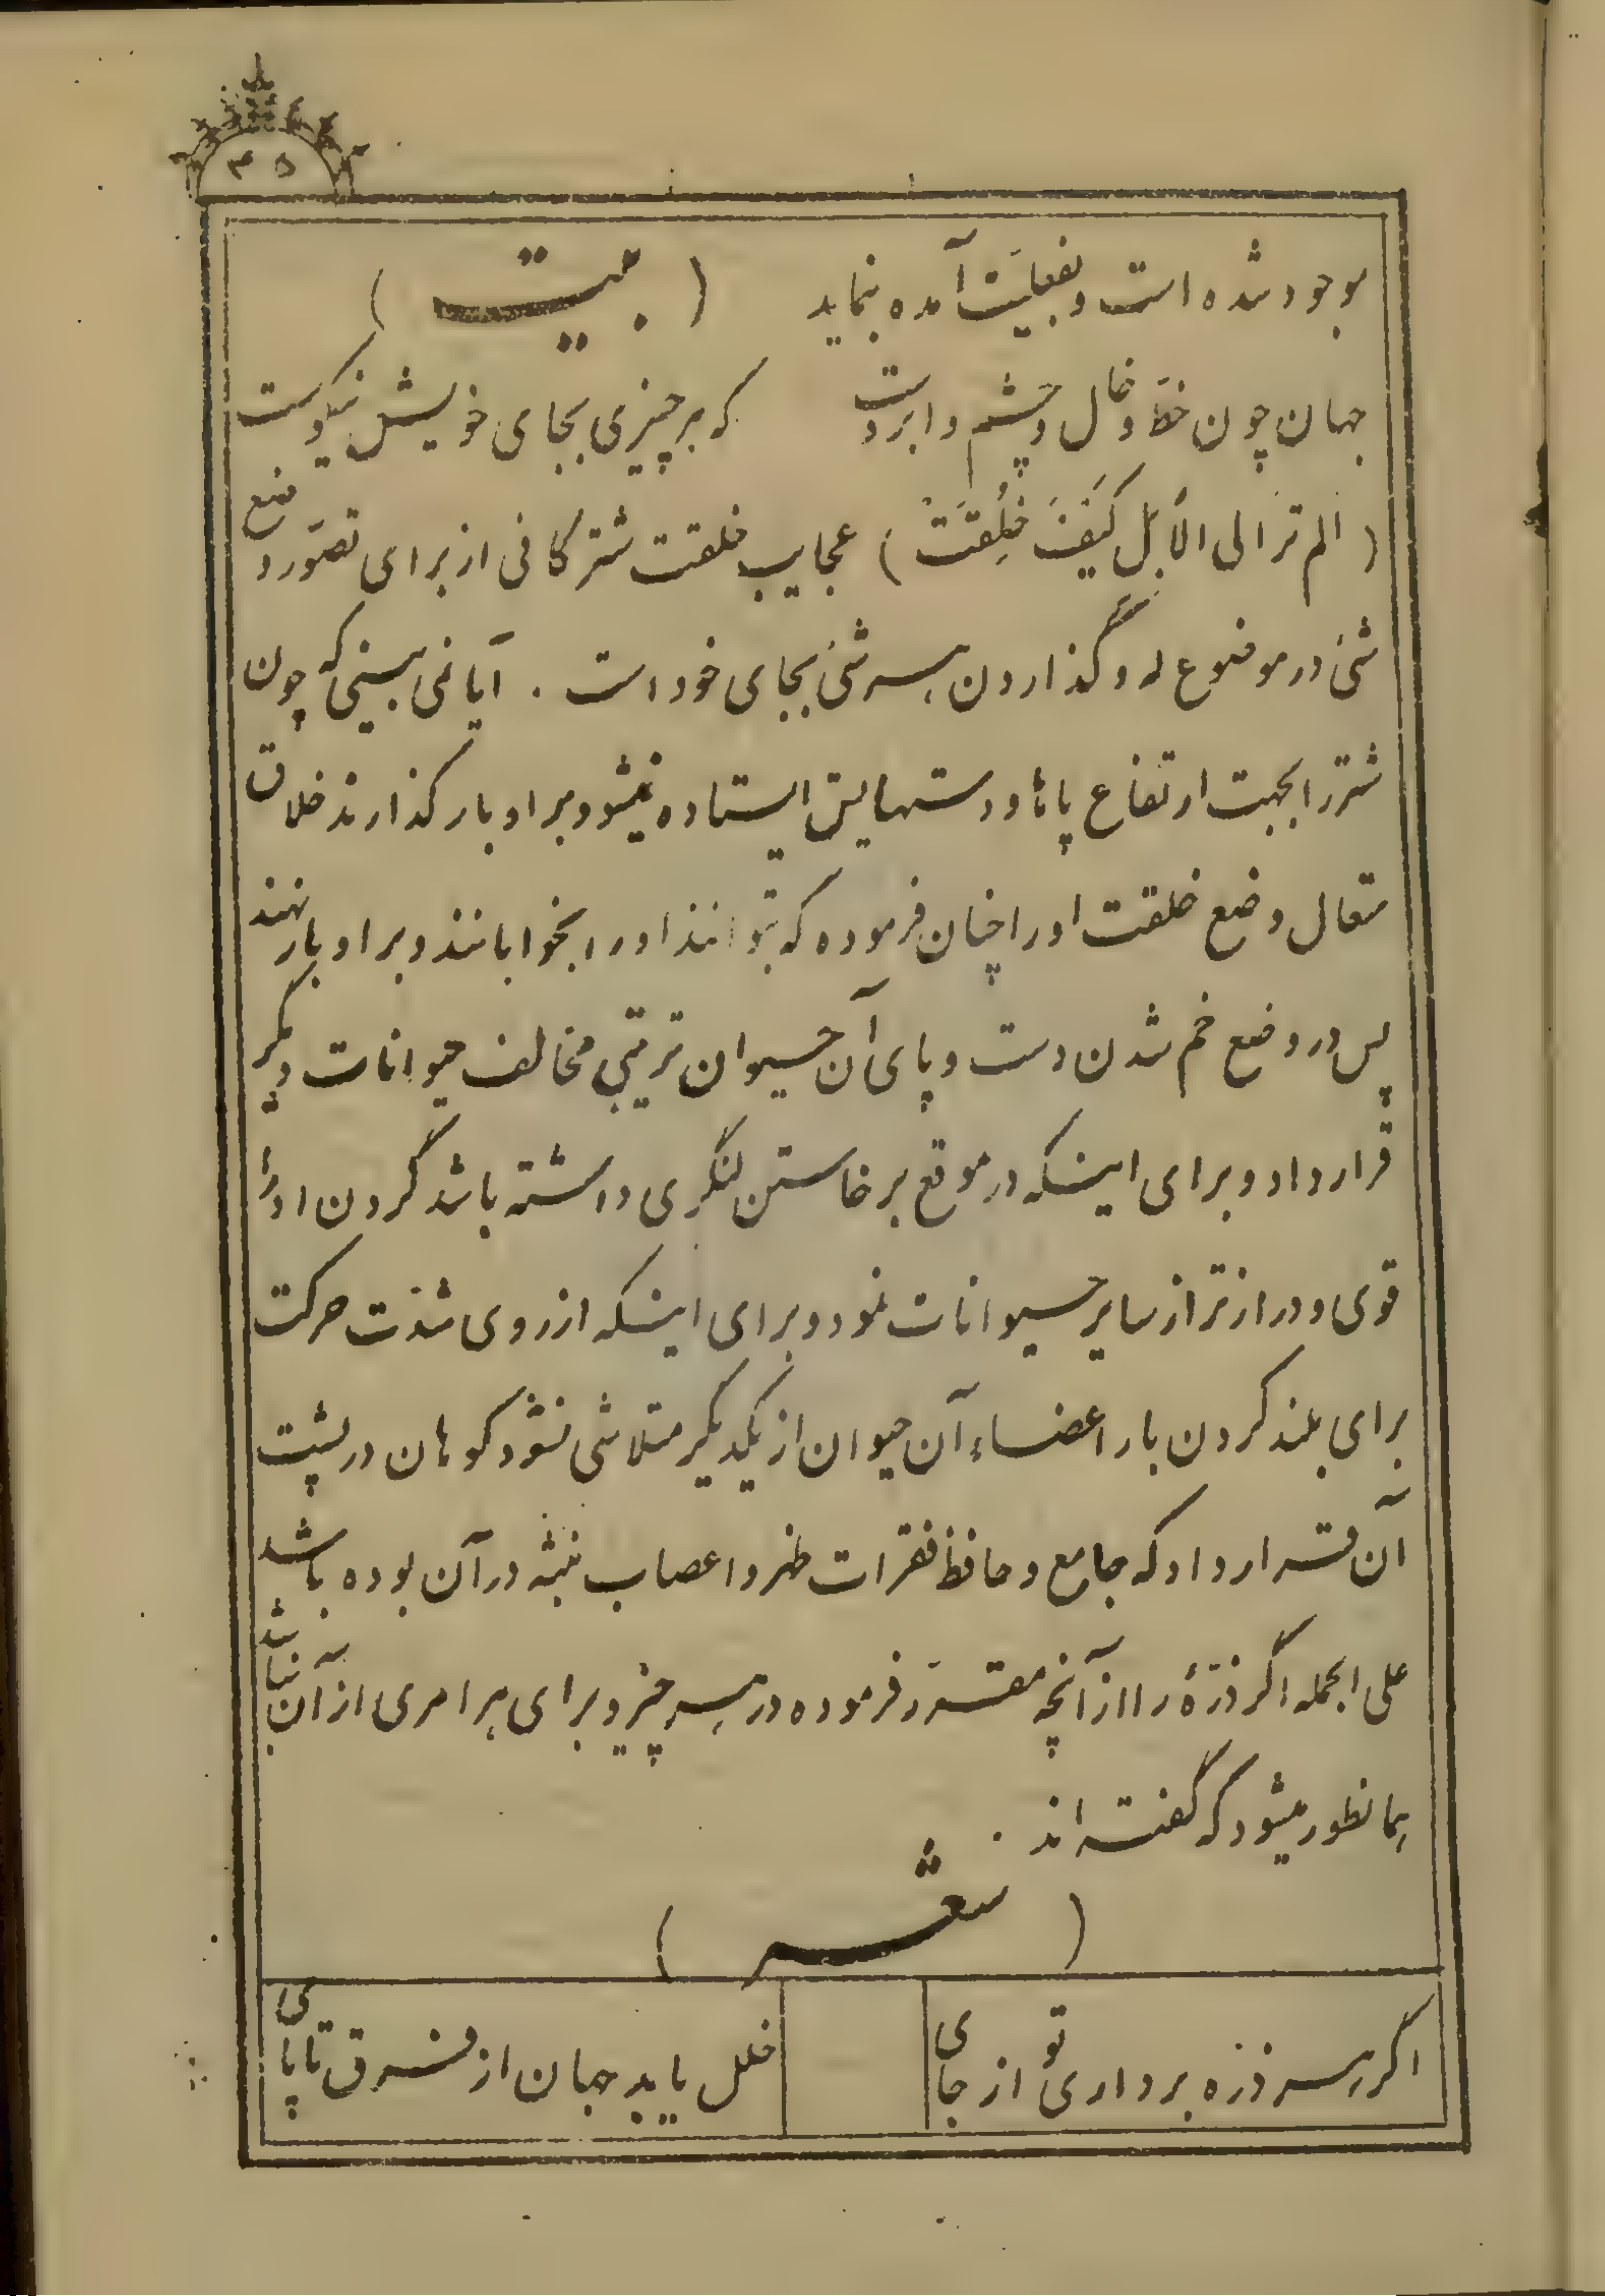 ۳۵
موجود شده است و بفعلیّت آمده بنماید ( بیت )
جهان چون خطّ و خال و چشم و ابروست که هر چیزی بجای خویش نیکوست
( الم تر الی الأبل کَیفَ خُلِقَتْ ) عجایب خلقت شتر کافی از برای تصوّر وضع
شئ در موضوع له و گذاردن هر شئ بجای خود است . آیا نمی بینی که چون
شتر را بجهت ارتفاع پاها و دستهایش ایستاده نمیشود بر او بار گذارند خلاق
متعال وضع خلقت او را چنان فرموده که بتوانند او را بخوابانند و بر او بار نهند
پس در وضع خم شدن دست و پای آن حیوان ترتیبی مخالف حیوانات دیگر
قرار داد و برای اینکه در موقع برخاستن لنگری داشته باشد گردن او را
قوی و دراز تر از سایر حیوانات نمود و برای اینکه از روی شدّت حرکت
برای بلند کردن بار اعضاء آن حیوان از یکدیگر متلاشی نشود کوهان در پشت
آن قرار داد که جامع و حافظ فقرات ظهر و اعصاب منبثه در آن بوده باشد
علی الجمله اگر ذرّهٔ را از آنچه مقرّر فرموده در هر چیز و برای هر امری از آن نباشد
همانطور میشود که گفته اند .
( شعر )
اگر هر ذره برداری تو از جای خلل یابد جهان از فرق تا پای